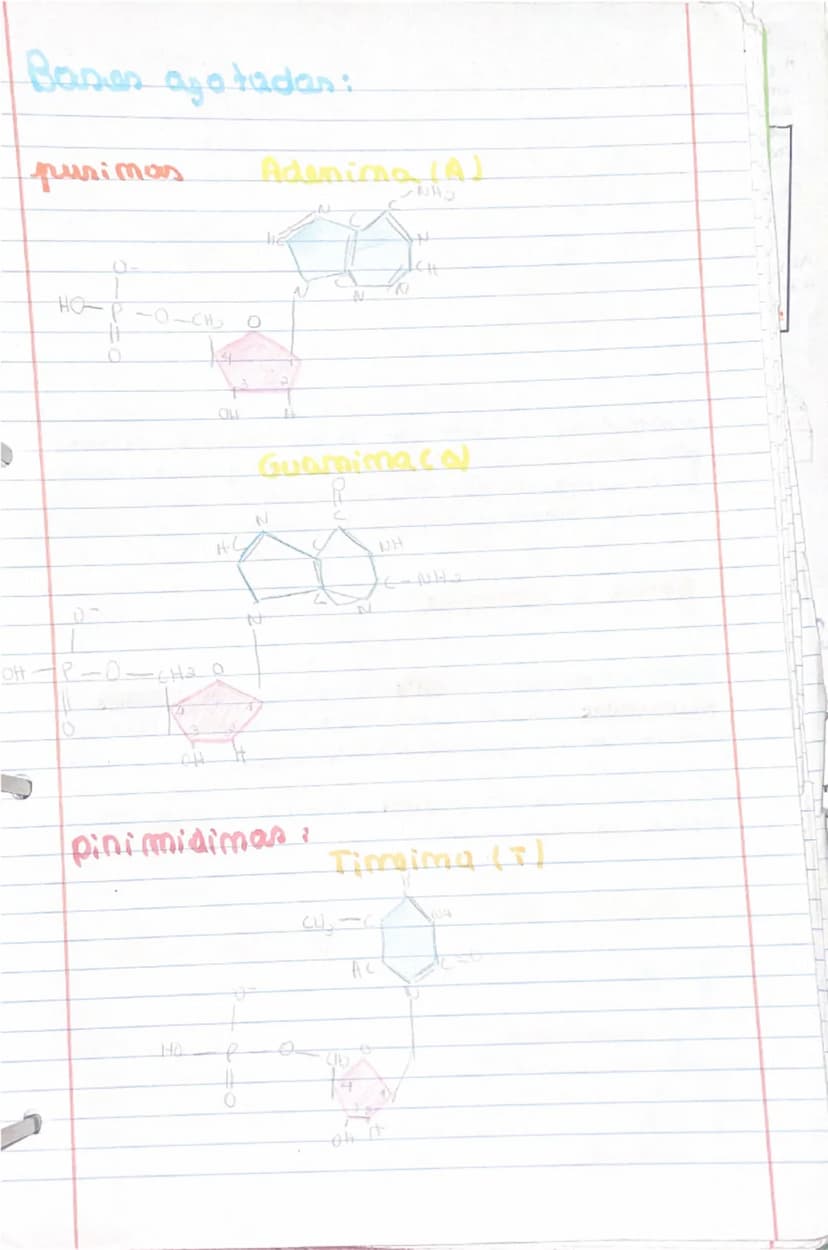 Bases azotadas:
purinas Adenina (A)
NH2
N C C
HC N
CH
N C N N
O-
HO-P-O-CH2 O
O
4 1
3 2
OH H
Guanina (
O
C
N
HC C NH
C-NH2
N C N
O-
OH-P-O-CH2 O
4 1
O 3 2
OH H
pirimidinas:
Timina (T)
CH3-C NH
HC C=O
N
O-
HO-P-O-CH2 O
4 1
O 3 2
OH H